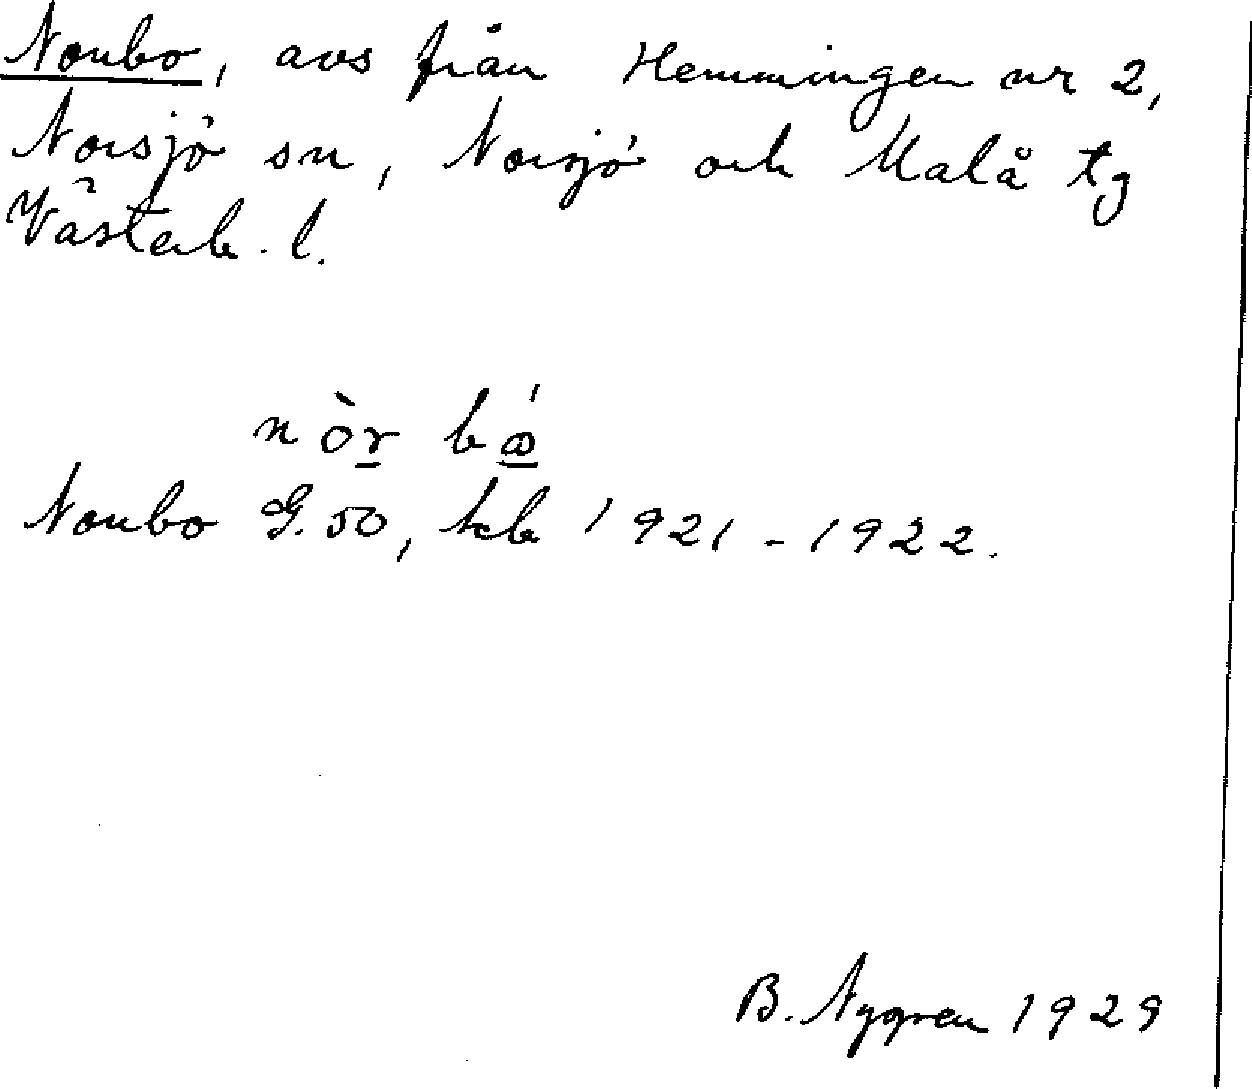 Norrbo, avs från Hemmingen nr 2,
Norsjö sn, Norsjö och Malå tg
Västerb. l.
Norrbo G. 50, tcb 1921-1922.
B. Nygren 1929